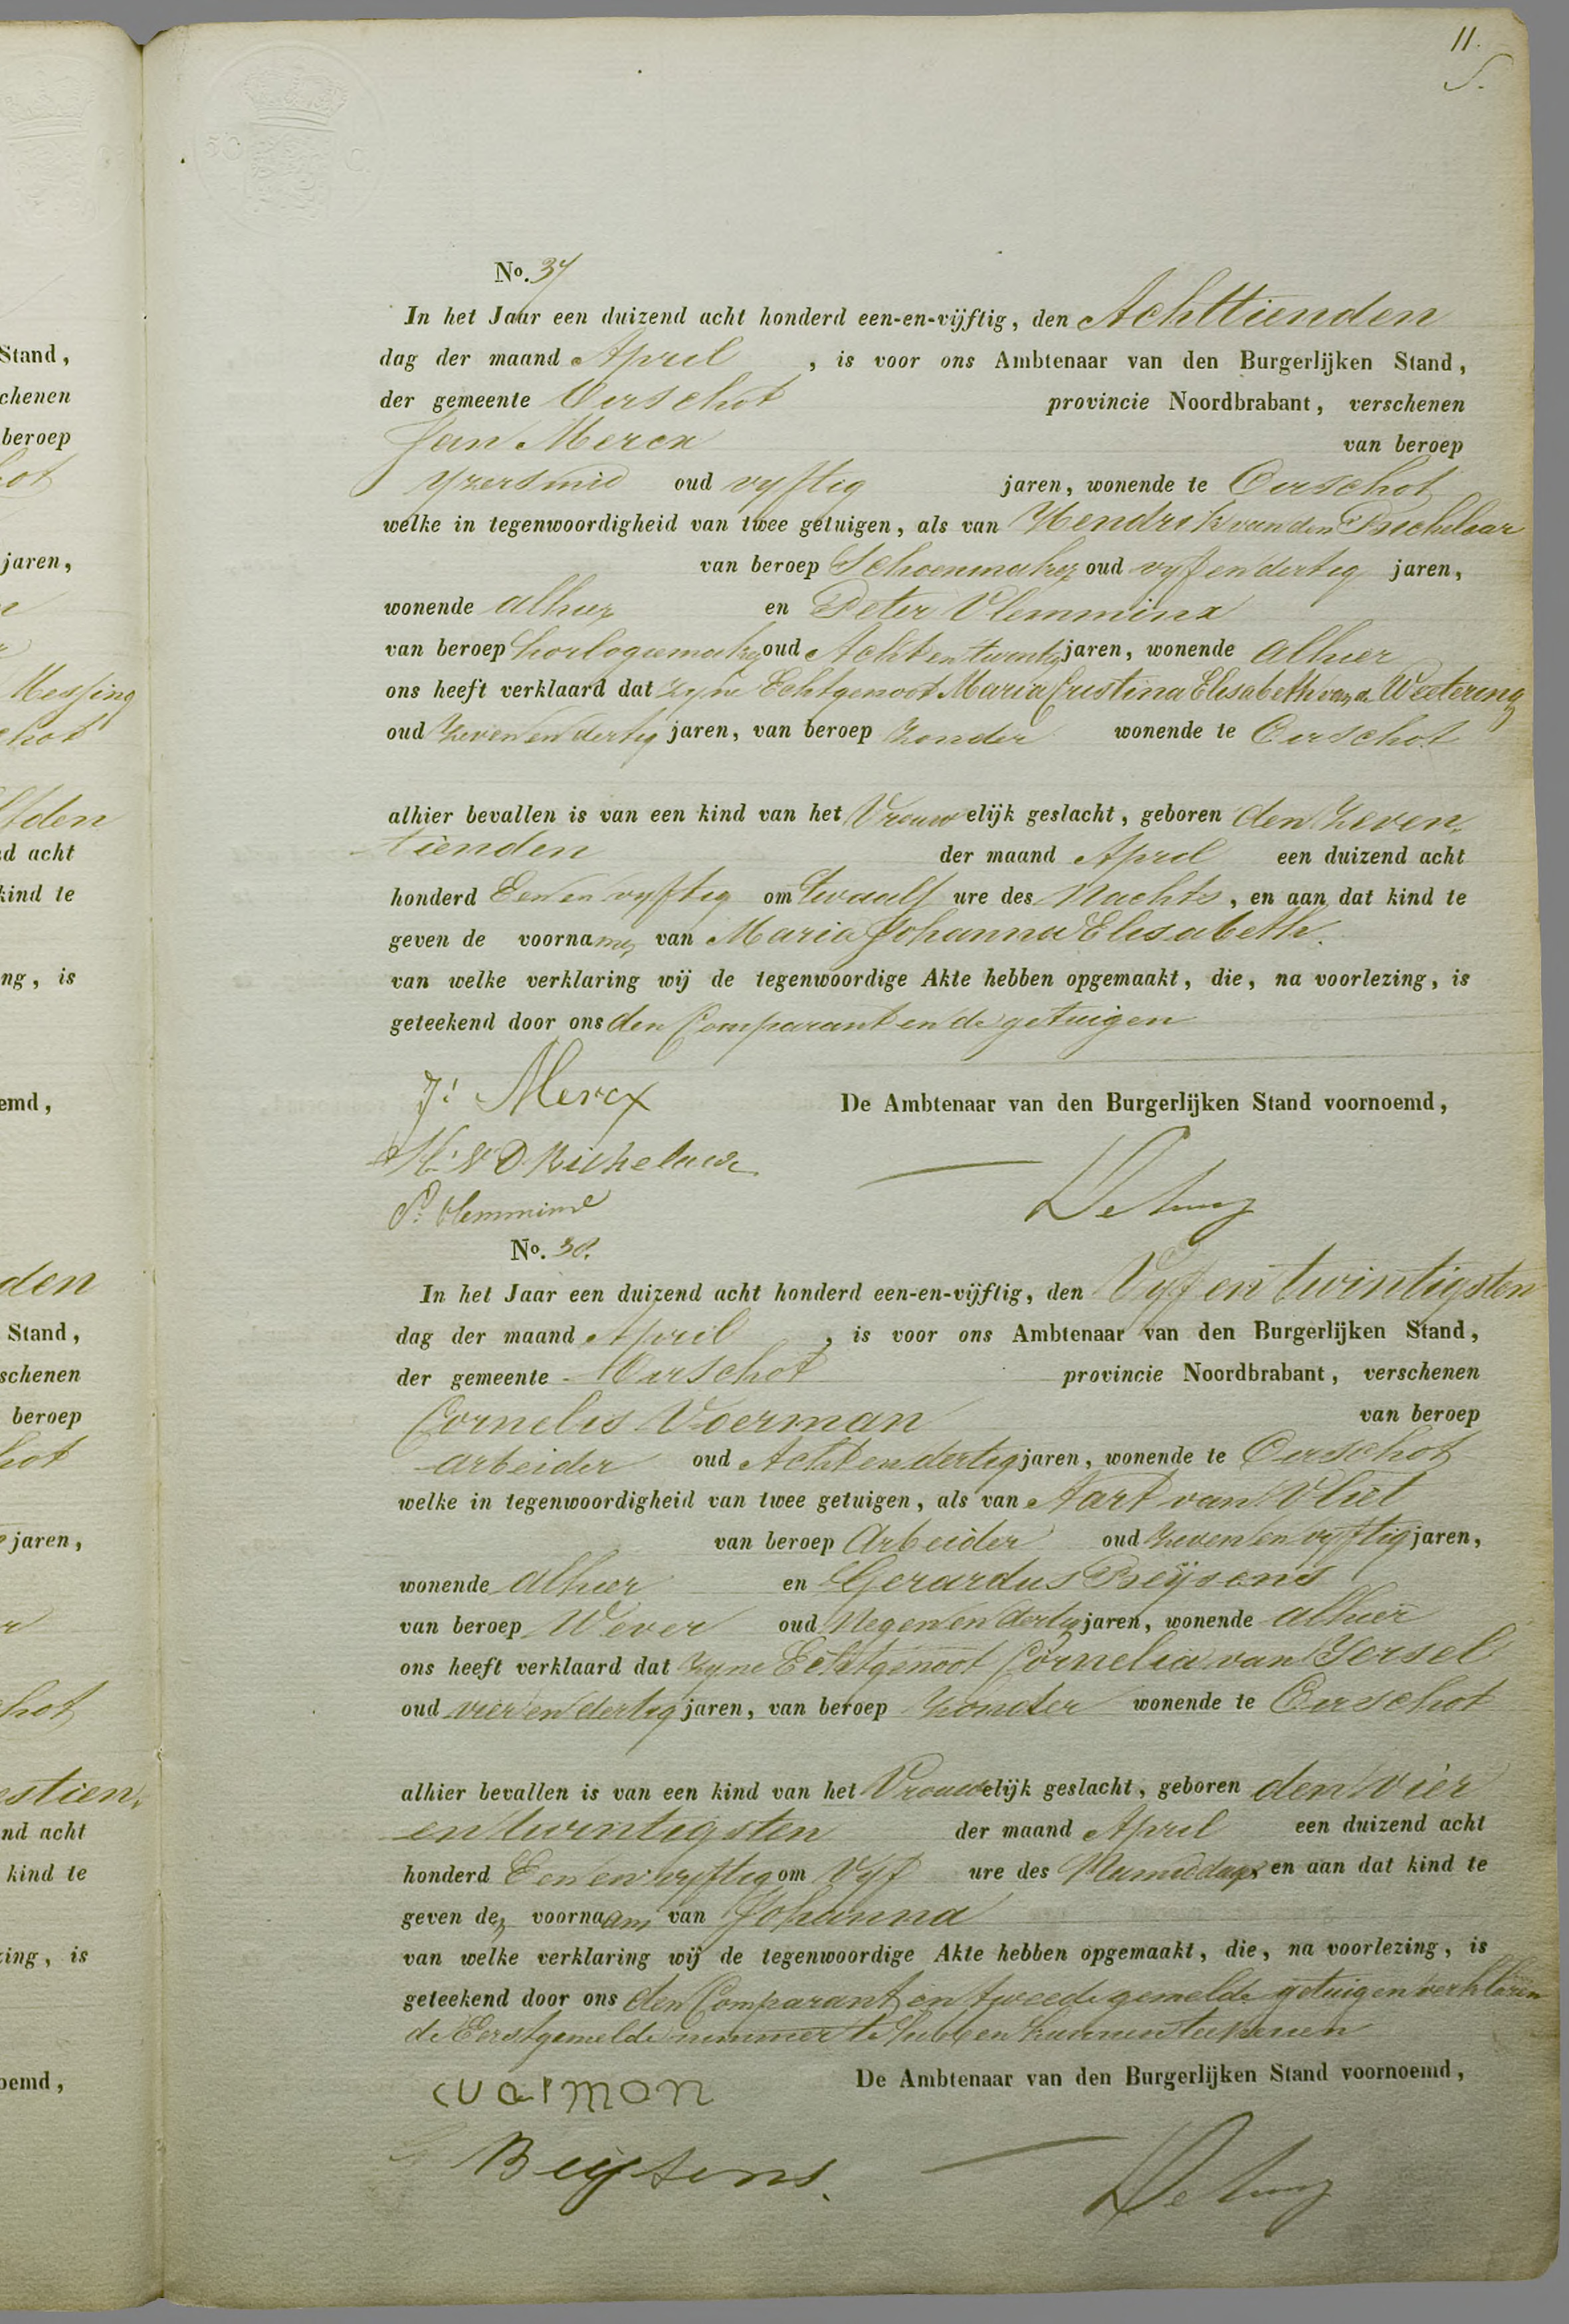 11.
S.
50 C.
No. 37
In het Jaar een duizend acht honderd een-en-vijftig, den Achttienden
dag der maand April , is voor ons Ambtenaar van den Burgerlijken Stand,
der gemeente Oirschot provincie Noordbrabant, verschenen
Jan Mercx van beroep
Yzersmid oud vyftig jaren, wonende te Oirschot
welke in tegenwoordigheid van twee getuigen, als van Hendrik van den
van beroep Schoenmaker oud vyf en dertig jaren,
wonende alhier en Peter Vlemminx
van beroep horlogiemaker oud Acht en twintig jaren, wonende alhier
ons heeft verklaard dat zyne Echtgenoot Maria Cristina Elisabeth van de Weetering
oud Zeven en dertig jaren, van beroep zonder wonende te Oirschot
alhier bevallen is van een kind van het Vrouwelijk geslacht, geboren den Zeven
tienden der maand April een duizend acht
honderd Een en vyftig om twaalf ure des Nachts, en aan dat kind te
geven de voornamen van Maria Johanna Elisabeth.
van welke verklaring wij de tegenwoordige Akte hebben opgemaakt, die, na voorlezing, is
geteekend door ons den Comparant en de getuigen
J: Mercx
De Ambtenaar van den Burgerlijken Stand voornoemd,
H: V D
P: Vlemminx
No. 38.
In het Jaar een duizend acht honderd een-en-vijftig, den Vyf en twintigsten
dag der maand April , is voor ons Ambtenaar van den Burgerlijken Stand,
der gemeente Oirschot provincie Noordbrabant, verschenen
Cornelis Voerman van beroep
arbeider oud Acht en dertig jaren, wonende te Oirschot
welke in tegenwoordigheid van twee getuigen, als van Aart van Vliet
van beroep Arbeider oud Zeven en vyftig jaren,
wonende alhier en Gerardus Beijsens
van beroep Wever oud Negen en dertig jaren, wonende alhier
ons heeft verklaard dat zyne Echtgenoot Cornelia van Gersel
oud vier en dertig jaren, van beroep zonder wonende te Oirschot
alhier bevallen is van een kind van het Vrouwelijk geslacht, geboren den vier
en twintigsten der maand April een duizend acht
honderd Een en vyftig om Vyf ure des Namiddags en aan dat kind te
geven den voornaam van Johanna
van welke verklaring wij de tegenwoordige Akte hebben opgemaakt, die, na voorlezing, is
geteekend door ons den Comparant en tweede gemelde getuigen verklaren
de Eerstgemelde nimmer te hebben kunnen teekenen
De Ambtenaar van den Burgerlijken Stand voornoemd,
cvarmon
Beijsens.